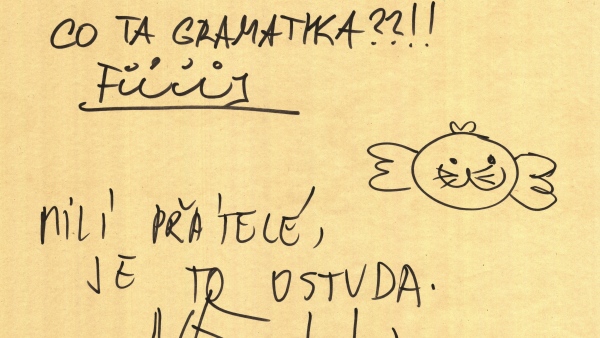 CO TA GRAMATIKA??!!
MILÍ PŘÁTELÉ,
JE TO OSTUDA.